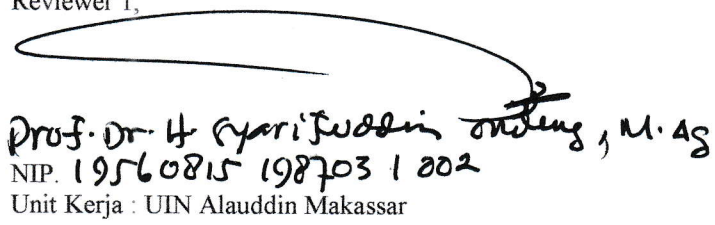 Reviewer 1,
Prof. Dr. H Syarifuddin Ondeng, M. Ag
NIP. 19560815 198703 1 002
Unit Kerja : UIN Alauddin Makassar